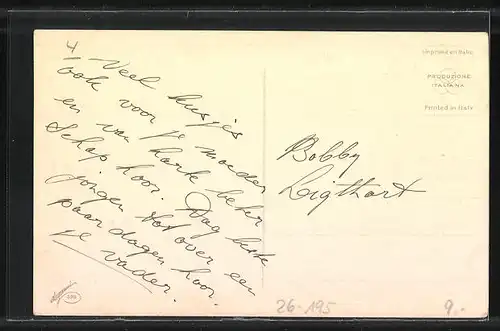 4
Veel kusjes
ook voor je moeder
en van harte beter
schap hoor. Dag beste
jongen tot over een
paar dagen hoor.
je vader.
Bobby
Ligthart
Imprimé en Italie
PRODUZIONE
ITALIANA
Printed in Italy
26-195
9.-